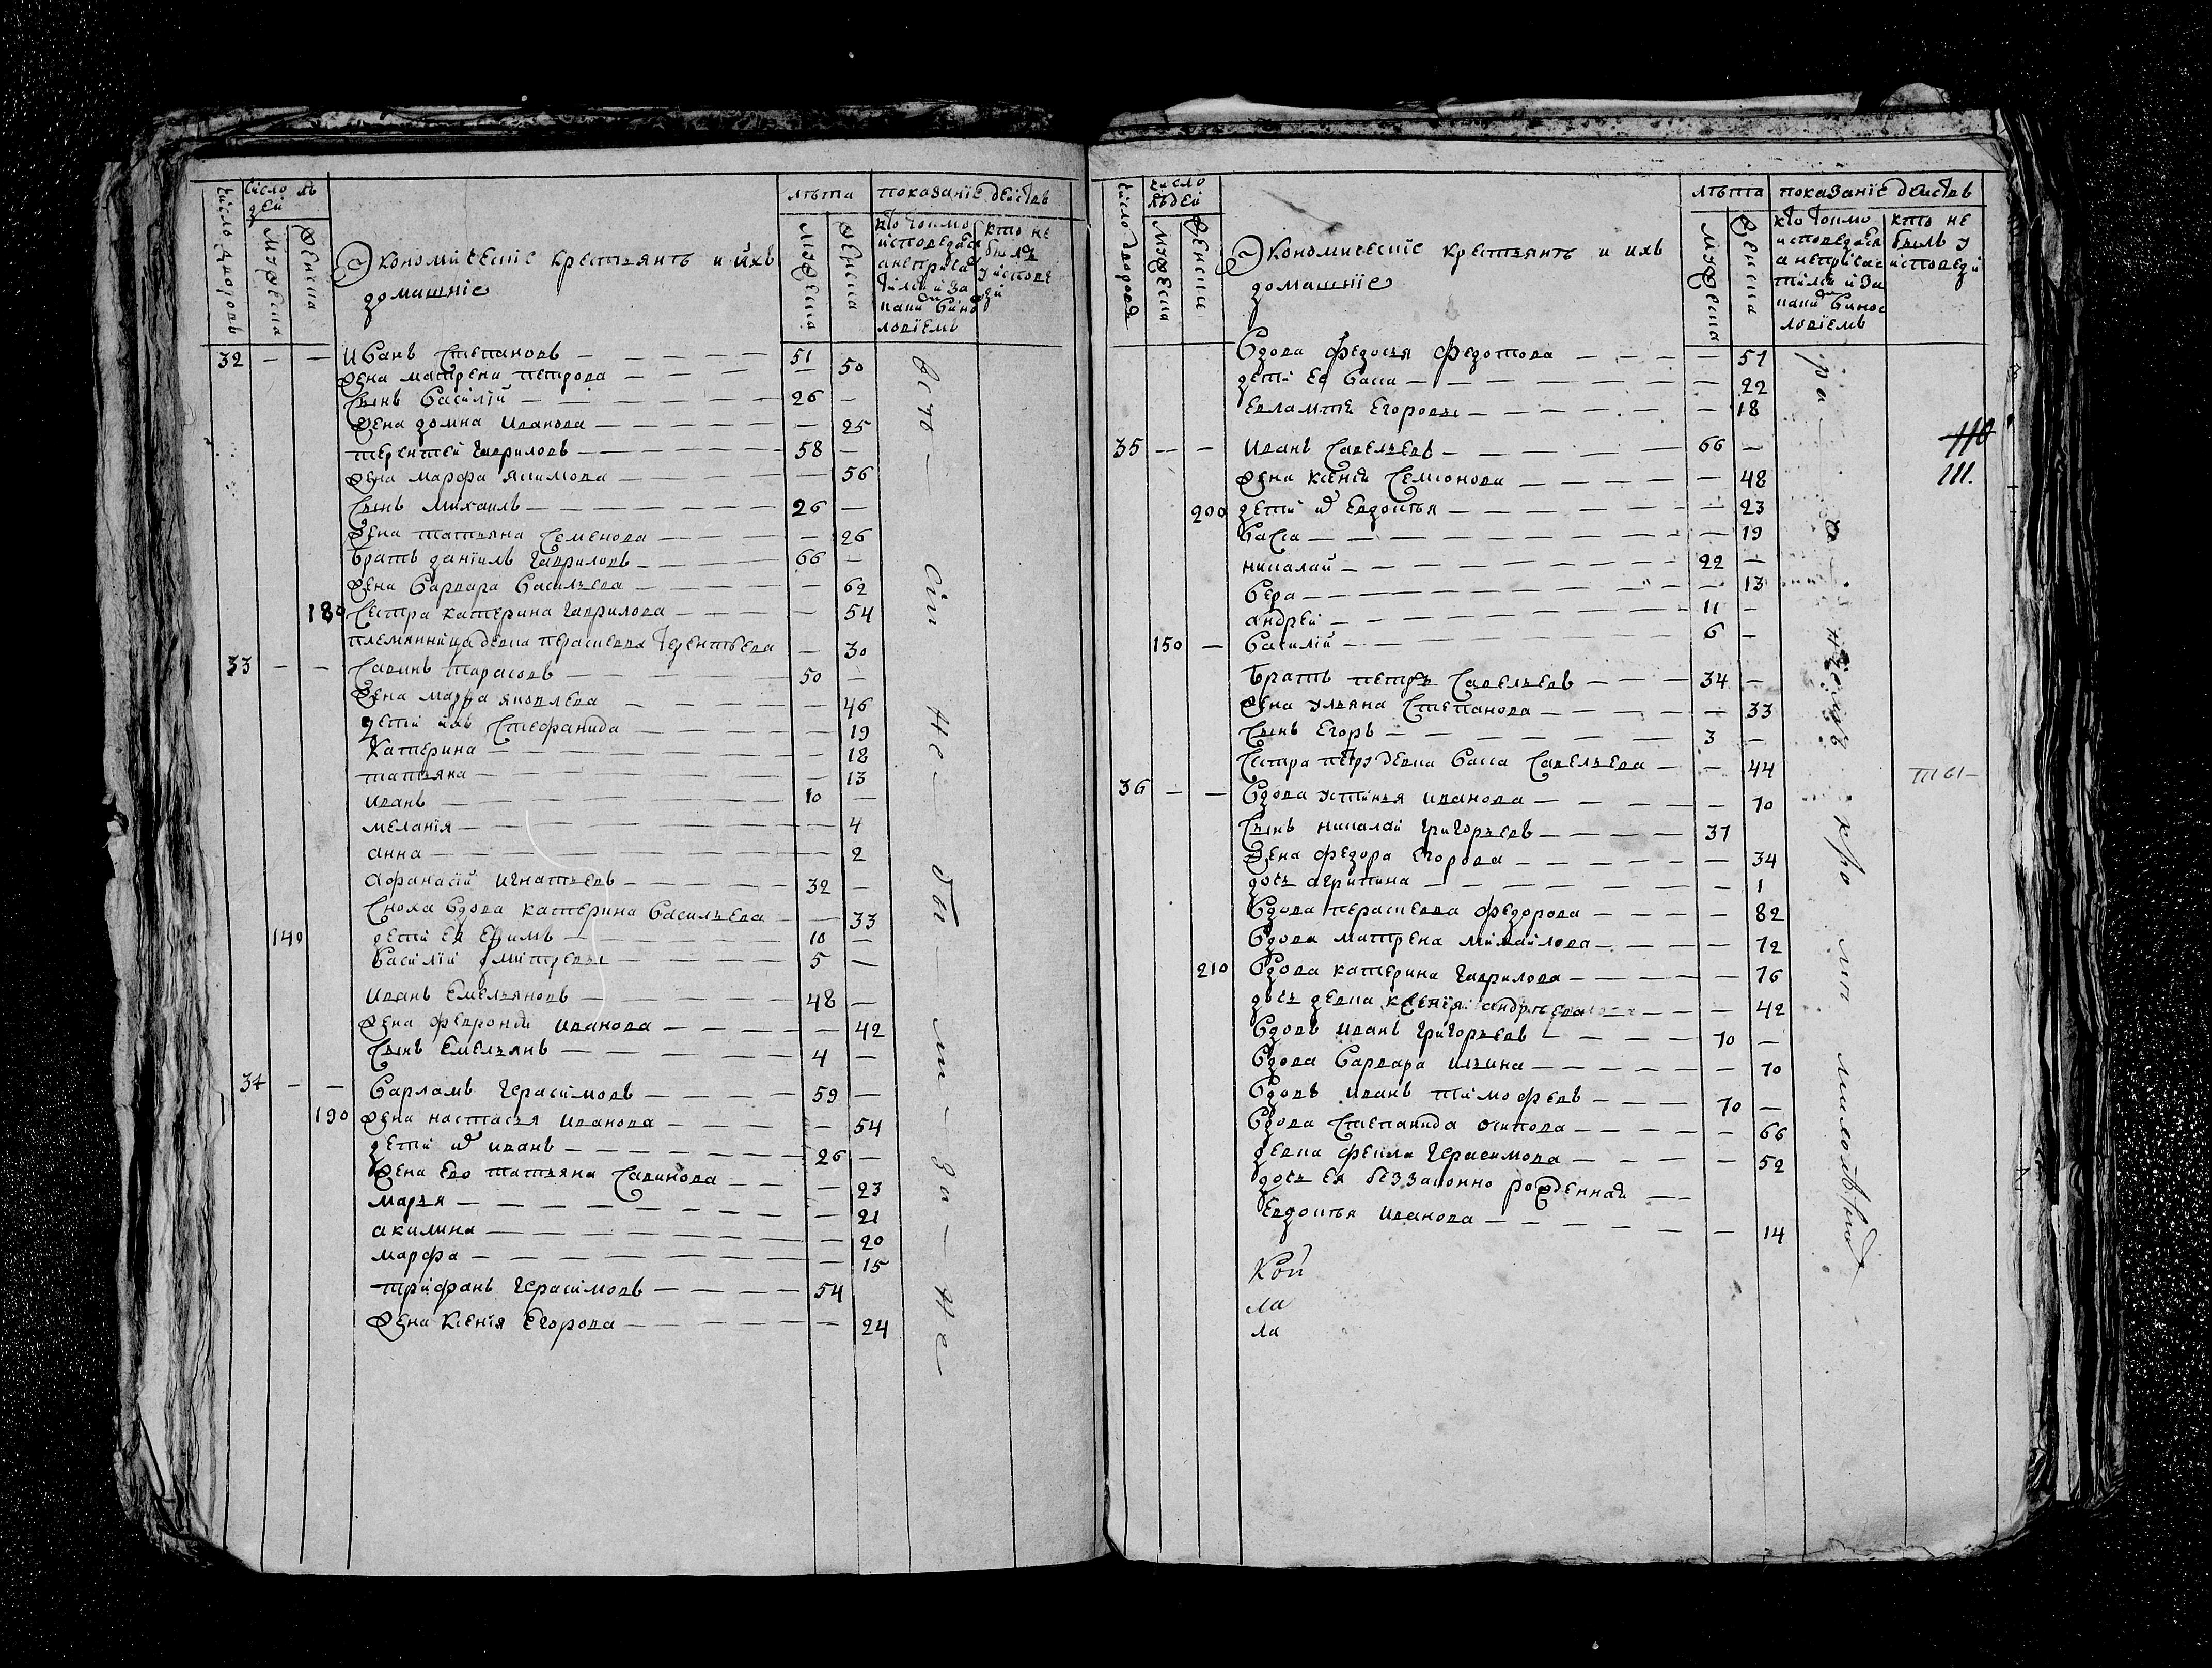 число дворовъ
число людей
мужеска
женска
Экономическіе крестьянъ и ихъ
домашніе
лѣта
мужеска
женска
показаніе действъ
кто токмо
исповедася
а непричас
тился и за
каким винос
ловіемъ
кто не
былъ
у испове
ди
32 — — Иванъ Степановъ — 51
жена матрена петрова — 50
сынъ василій — 26 —
жена домна иванова — 25
терентей гавриловъ — 58 —
жена марфа якимова — 56
сынъ михаилъ — 26 —
жена татьяна семенова — 26
братъ даніилъ гавриловъ — 66 —
жена варвара васильева — 62
180 сестра катерина гаврилова — 54
племянница девка парасковья терентьева — 30
33 — — савинъ тарасовъ — 50 —
жена мавра яковлева — 46
дети ихъ стефанида — 19
катерина — 18
татьяна — 13
иванъ — 10 —
меланія — 4
анна — 2
афанасій игнатьевъ — 32 —
сноха вдова катерина васильева — 33
140 дети ея ефимъ — 10 —
василій дмитревы — 5 —
иванъ емельяновъ — 48 —
жена февронія иванова — 42
сынъ емельянъ — 4 —
34 — — варламъ герасимовъ — 59 —
190 жена настасья иванова — 54
дети иванъ — 26 —
жена его татьяна савинова — 23
марья — 21
акилина — 20
марфа — 15
трифанъ герасимовъ — 54
жена ксенія егорова — 24
число дворовъ
число
людей
мужеска
женска
Экономическіе крестьянъ и ихъ
домашніе
лѣта
мужеска
женска
показаніе действъ
кто токмо
исповедася
а непричас
тился и за
каким винос
ловіемъ
кто не
былъ у
исповеди
вдова федосья федотова — 51
дети ее васса — 22
евлампѣ егоровы — 18
35 — — иванъ савельевъ — 66 —
110
жена ксенія семіонова — 48
111.
200 дети евдокья — 23
васса — 19
николай — 22 —
вера — 13
андрей — 11 —
150 — василій — 6 —
братъ петръ савельевъ — 34 —
жена ульяна степанова — 33
сынъ егоръ — 3 —
сестра петру девка васса савельева — 44
36 — — вдова устинья иванова — 70
сынъ николай григорьевъ — 37
жена федора егорова — 34
дочь агрипина — 1
вдова парасковья федорова — 82
вдова матрена михайлова — 72
210 вдова катерина гаврилова — 76
дочь девка ксенія андреева — 42
вдовъ иванъ григорьевъ — 70 —
вдова варвара ильина — 70
вдовъ иванъ тимофеевъ — 70 —
вдова степанида осипова — 66
девка фекла герасимова — 52
дочь ея беззаконно рожденная —
евдокья иванова — 14